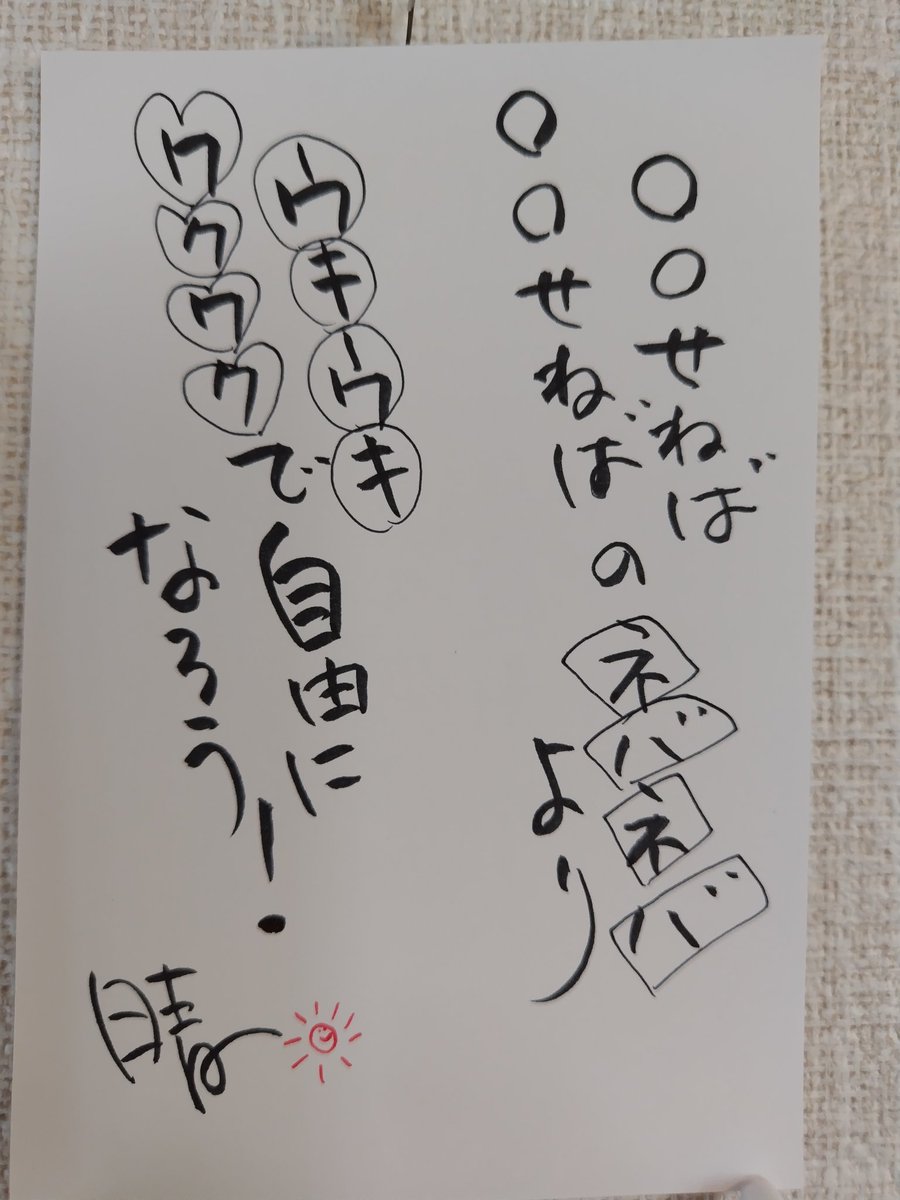 〇〇せねば
〇〇せねばの
ネバネバ
より
ウキウキ
ワクワクで
自由に
なろう!
晴